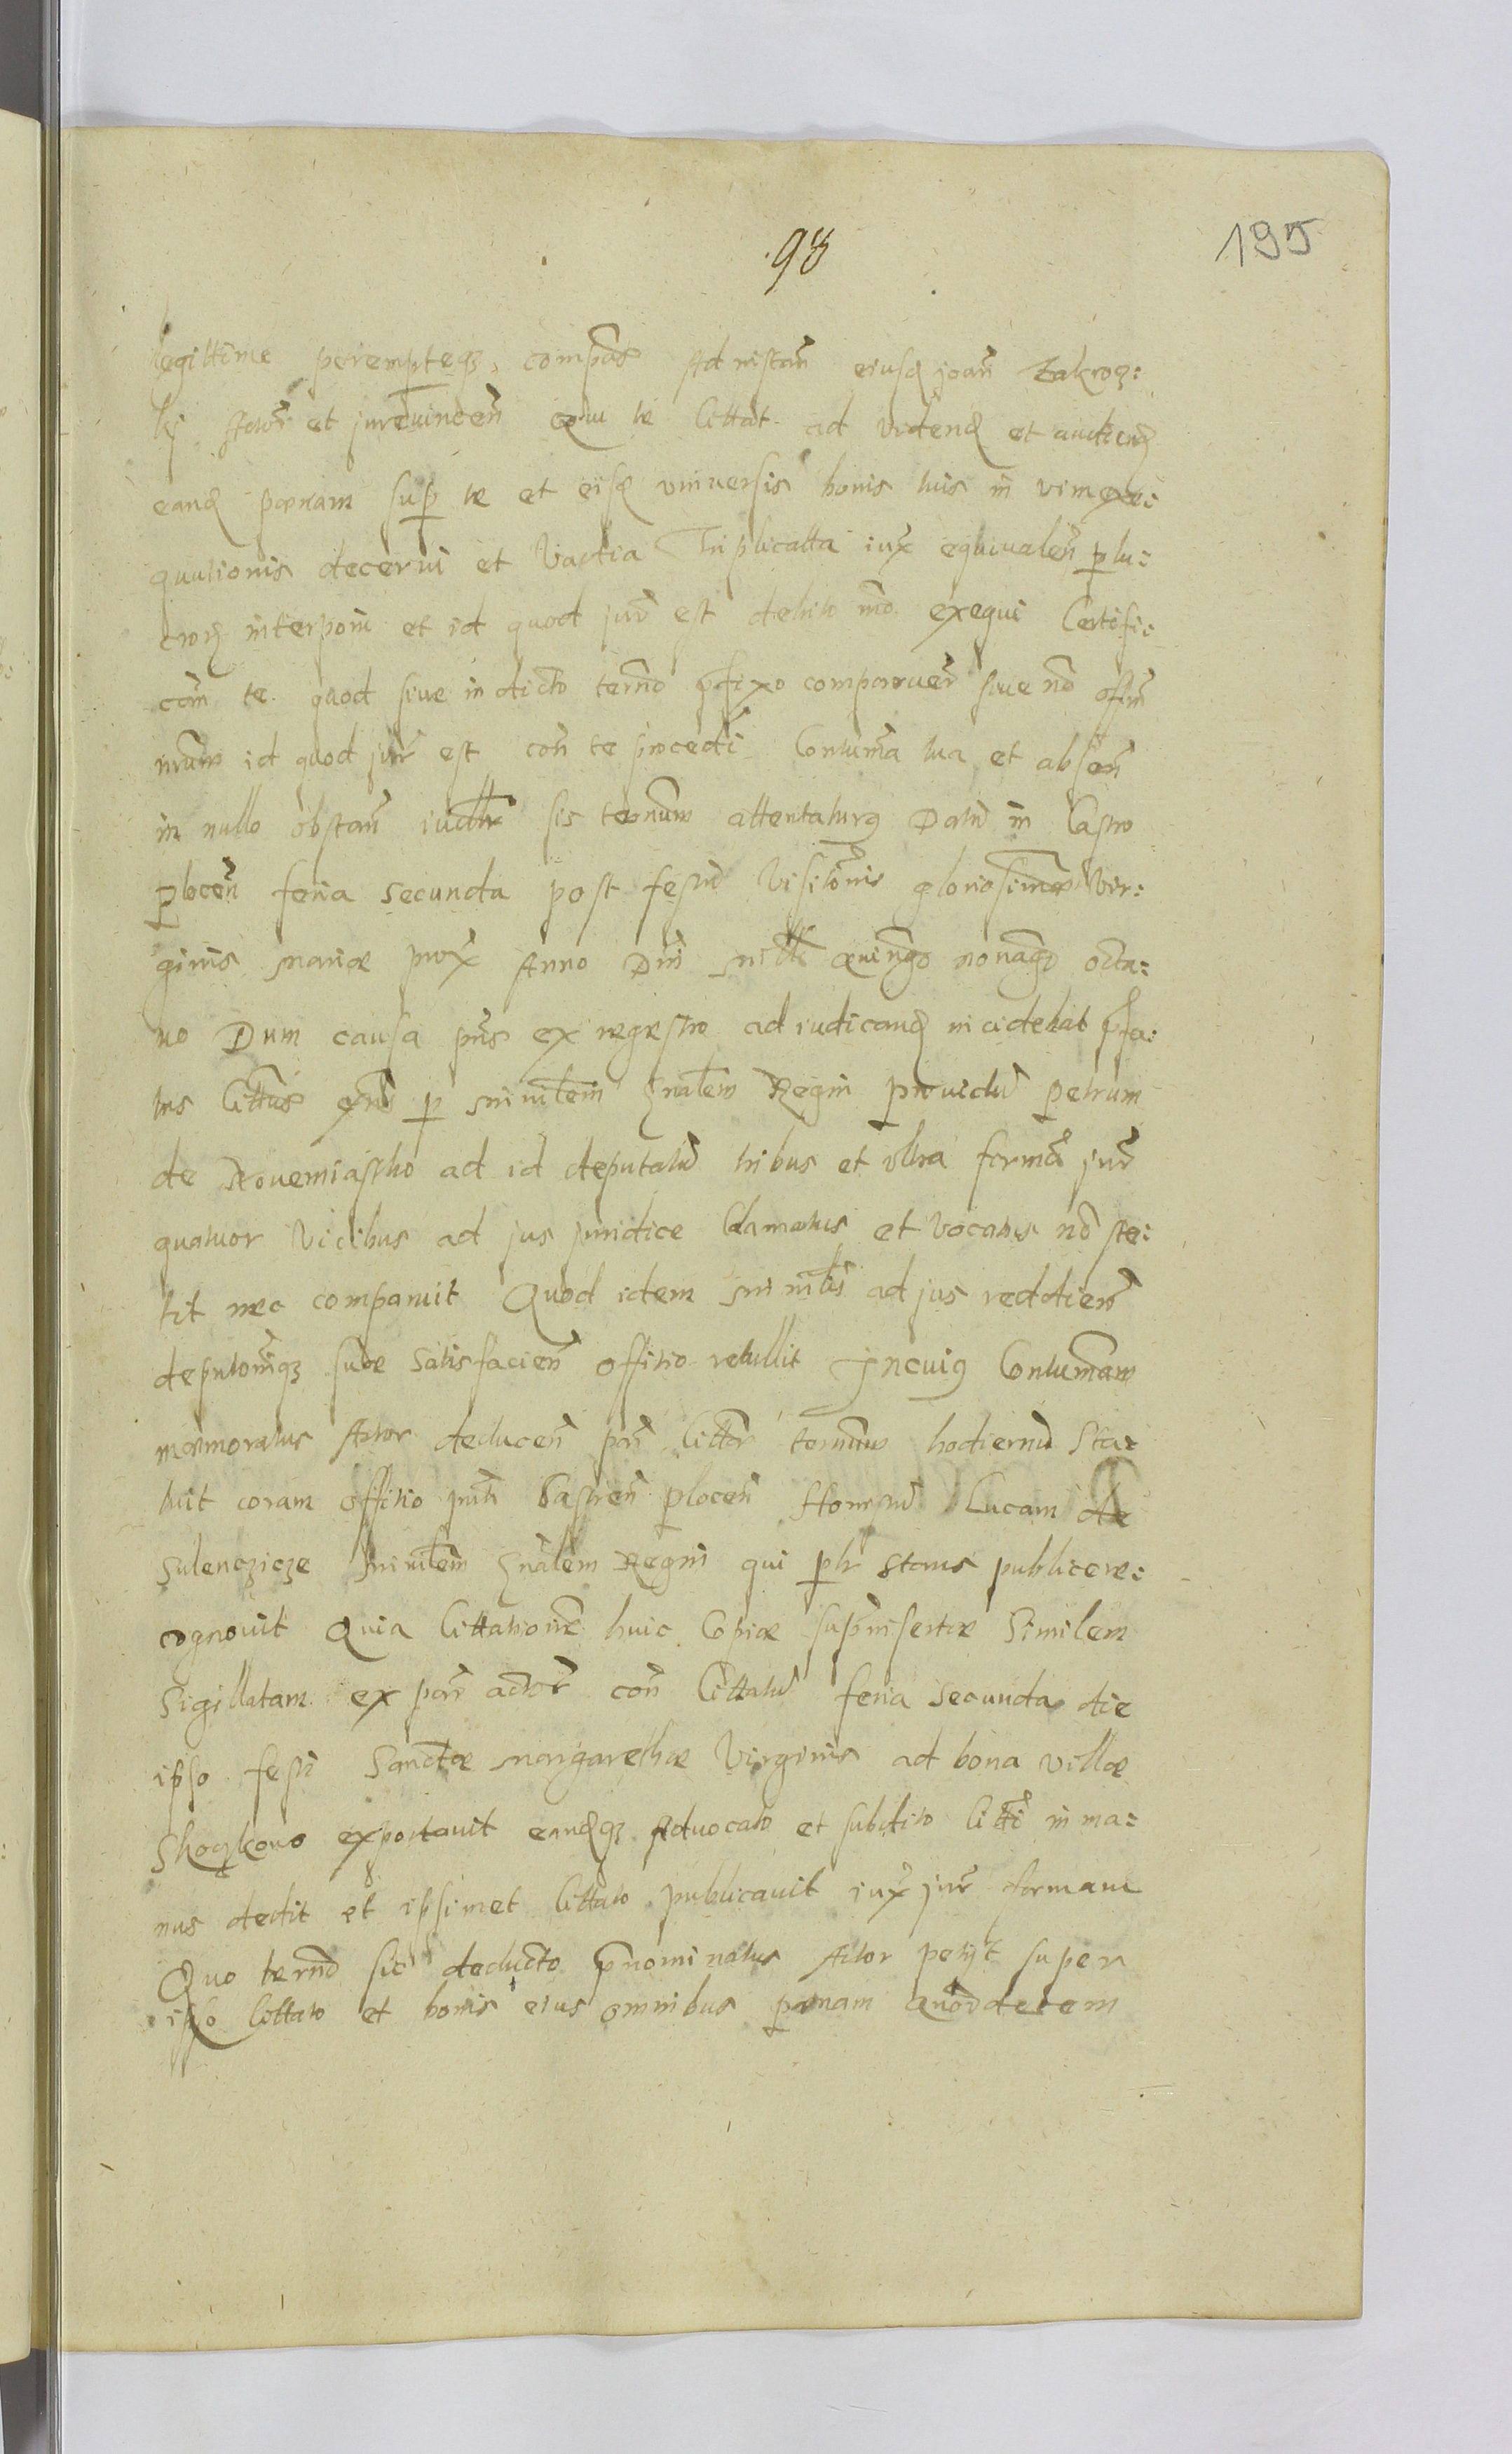 98
195
legittime perempteqz compas Ad instan eiusd joan Zakroz:
kj Actor et jurevincen qui te Cittat ad videnď et audienď
eanď pænam sup te et eisď vniversis bonis tuis in vim exe:
quutionis decerni et Vadia Triplicatta iux equivalen p lu:
crorz interponi et id quod jur est debito mo exequi Certifi:
can te quod siue in dicto termo pfixo comparuer siue no offm
nrum id quod jur est con te procedi Contuma tua et absen
in nullo obstan iudlr sis ternum attentaturg Datu in Castro
plocen feria secunda post festu Visitonis gloriosimæ Vir:
ginis mariæ prox Anno Dni millo quingo nonago octa:
uo Dum causa pns ex regestro ad iudicanď incidebat pfa:
tus Cittus exns p ministem gnalem Regni providu petrum
de Novemiastho ad id deputatu tribus et vltra forma jur
quatuor vicibus ad jus juridice Clamatus et vocatus no ste:
tit nec comparuit Quod idem ministr ad jus reddien
deputonisqz suæ satisfacien offitio retullit Jncuig Contumam
memoratus Actor deducen par Cittar ternum hodiernu Sta:
tuit coram offitio pnti Castren plocen Honestu Lucam de
Sulenczicze ministem gnalem Regni qui plr stans publicere:
cognovit Quia Cittatione huic Copiæ suprinsertæ Similem
Sigillatam ex par actor con Cittatu feria secunda die
ipso festi Sanctæ margarethæ Virginis ad bona villæ
exportavit eandqz Advocato et subdito Citti in ma:
nus dedit et ipsimet Cittato publicavit iux jur formam
Quo termo sic deducto pnominatus Actor petijt super
ipso Cittato et bonis eius omnibus pænam quordecem